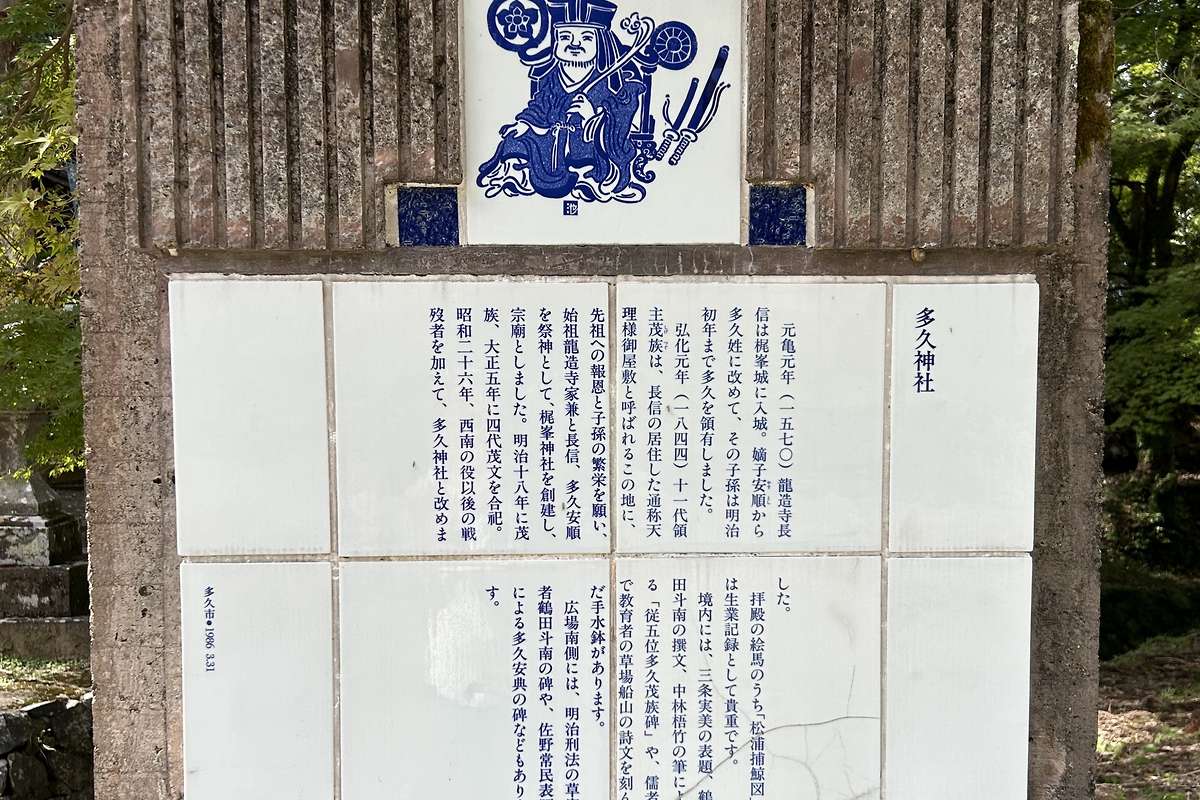 多久神社
元亀元年（一五七〇）龍造寺長
信は梶峯城に入城。嫡子安順から
多久姓に改めて、その子孫は明治
初年まで多久を領有しました。
弘化元年（一八四四）十一代領
主茂族は、長信の居住した通称天
理様御屋敷と呼ばれるこの地に、
先祖への報恩と子孫の繁栄を願い、
始祖龍造寺家兼と長信、多久安順
を祭神として、梶峯神社を創建し、
宗廟としました。明治十八年に茂
族、大正五年に四代茂文を合祀。
昭和二十六年、西南の役以後の戦
歿者を加えて、多久神社と改めま
した。
拝殿の絵馬のうち「松浦捕鯨図」
は生業記録として貴重です。
境内には、三条実美の表題、鶴
田斗南の撰文、中林梧竹の筆によ
る「従五位多久茂族碑」や、儒者
で教育者の草場船山の詩文を刻ん
だ手水鉢があります。
広場南側には、明治刑法の草
者鶴田斗南の碑や、佐野常民表
による多久安典の碑などもあり
す。
多久市●1986 3.31